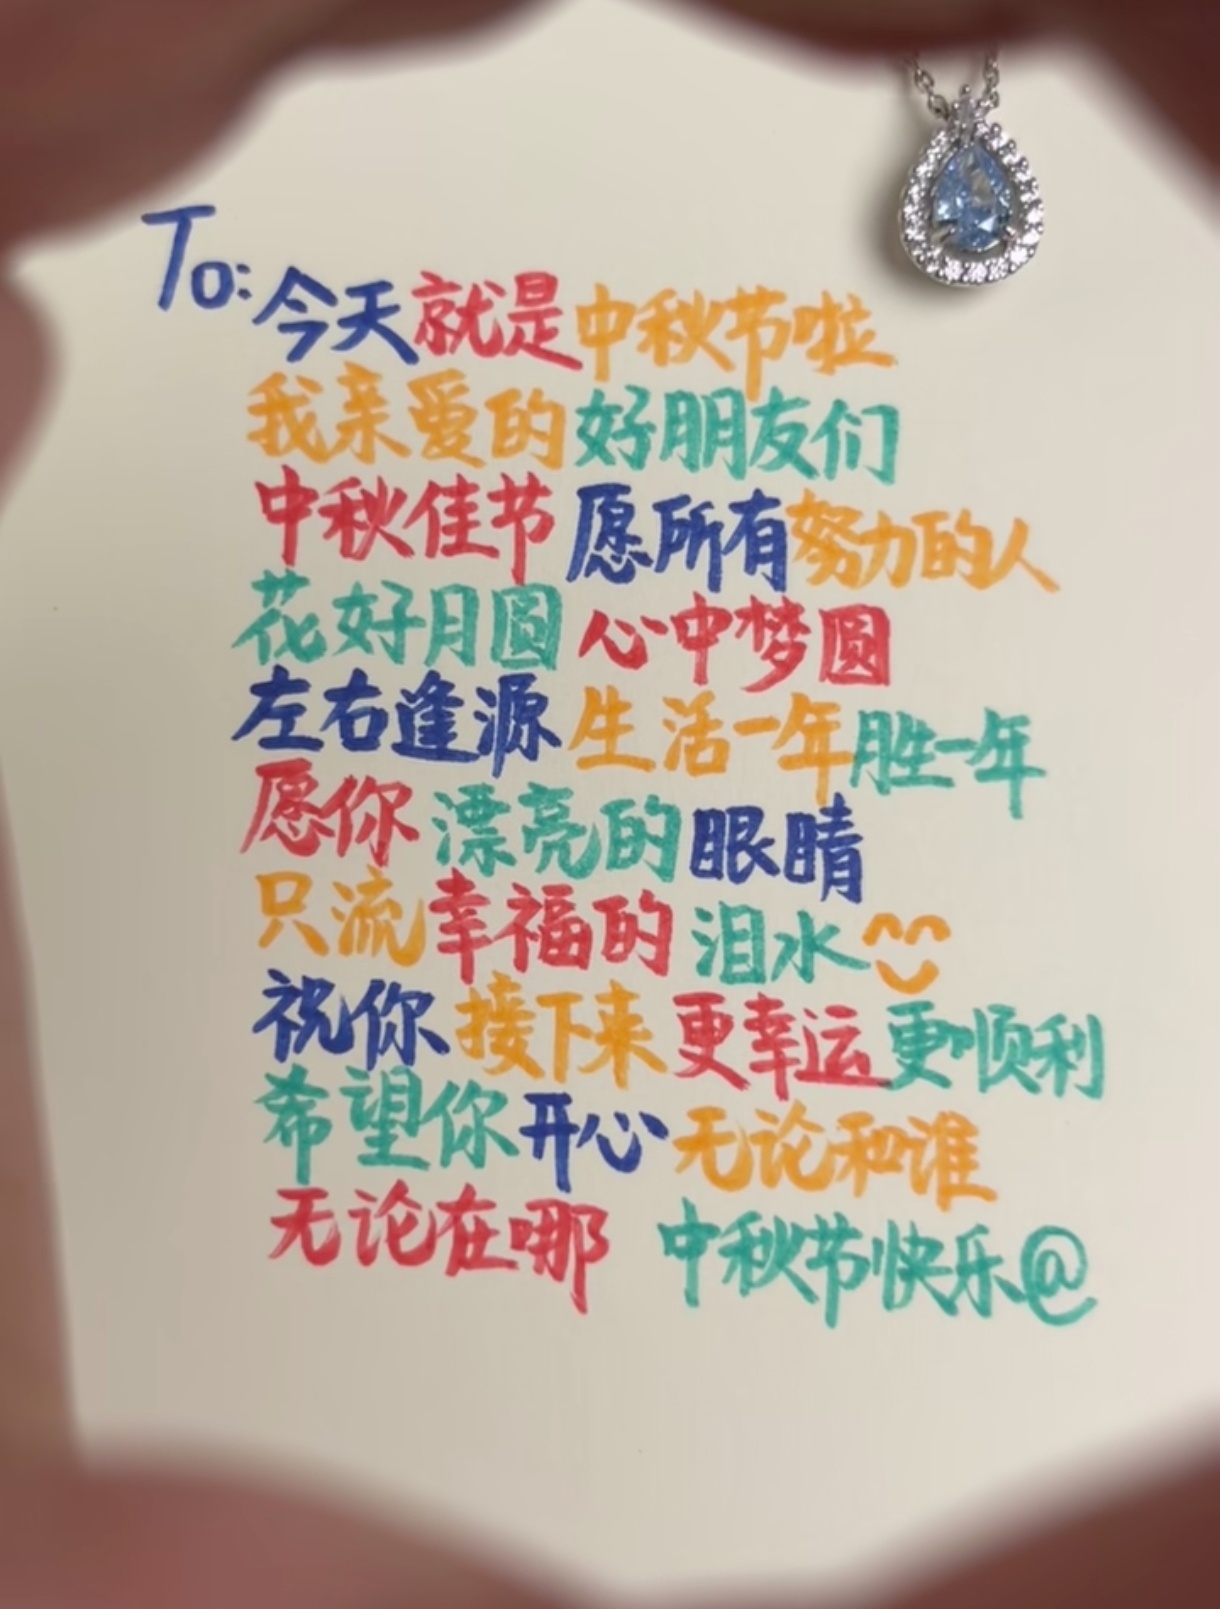 To: 今天就是中秋节啦
我亲爱的好朋友们
中秋佳节 愿所有努力的人
花好月圆 心中梦圆
左右逢源 生活一年胜一年
愿你漂亮的眼睛
只流幸福的泪水
祝你接下来更幸运更顺利
希望你开心无论和谁
无论在哪 中秋节快乐@